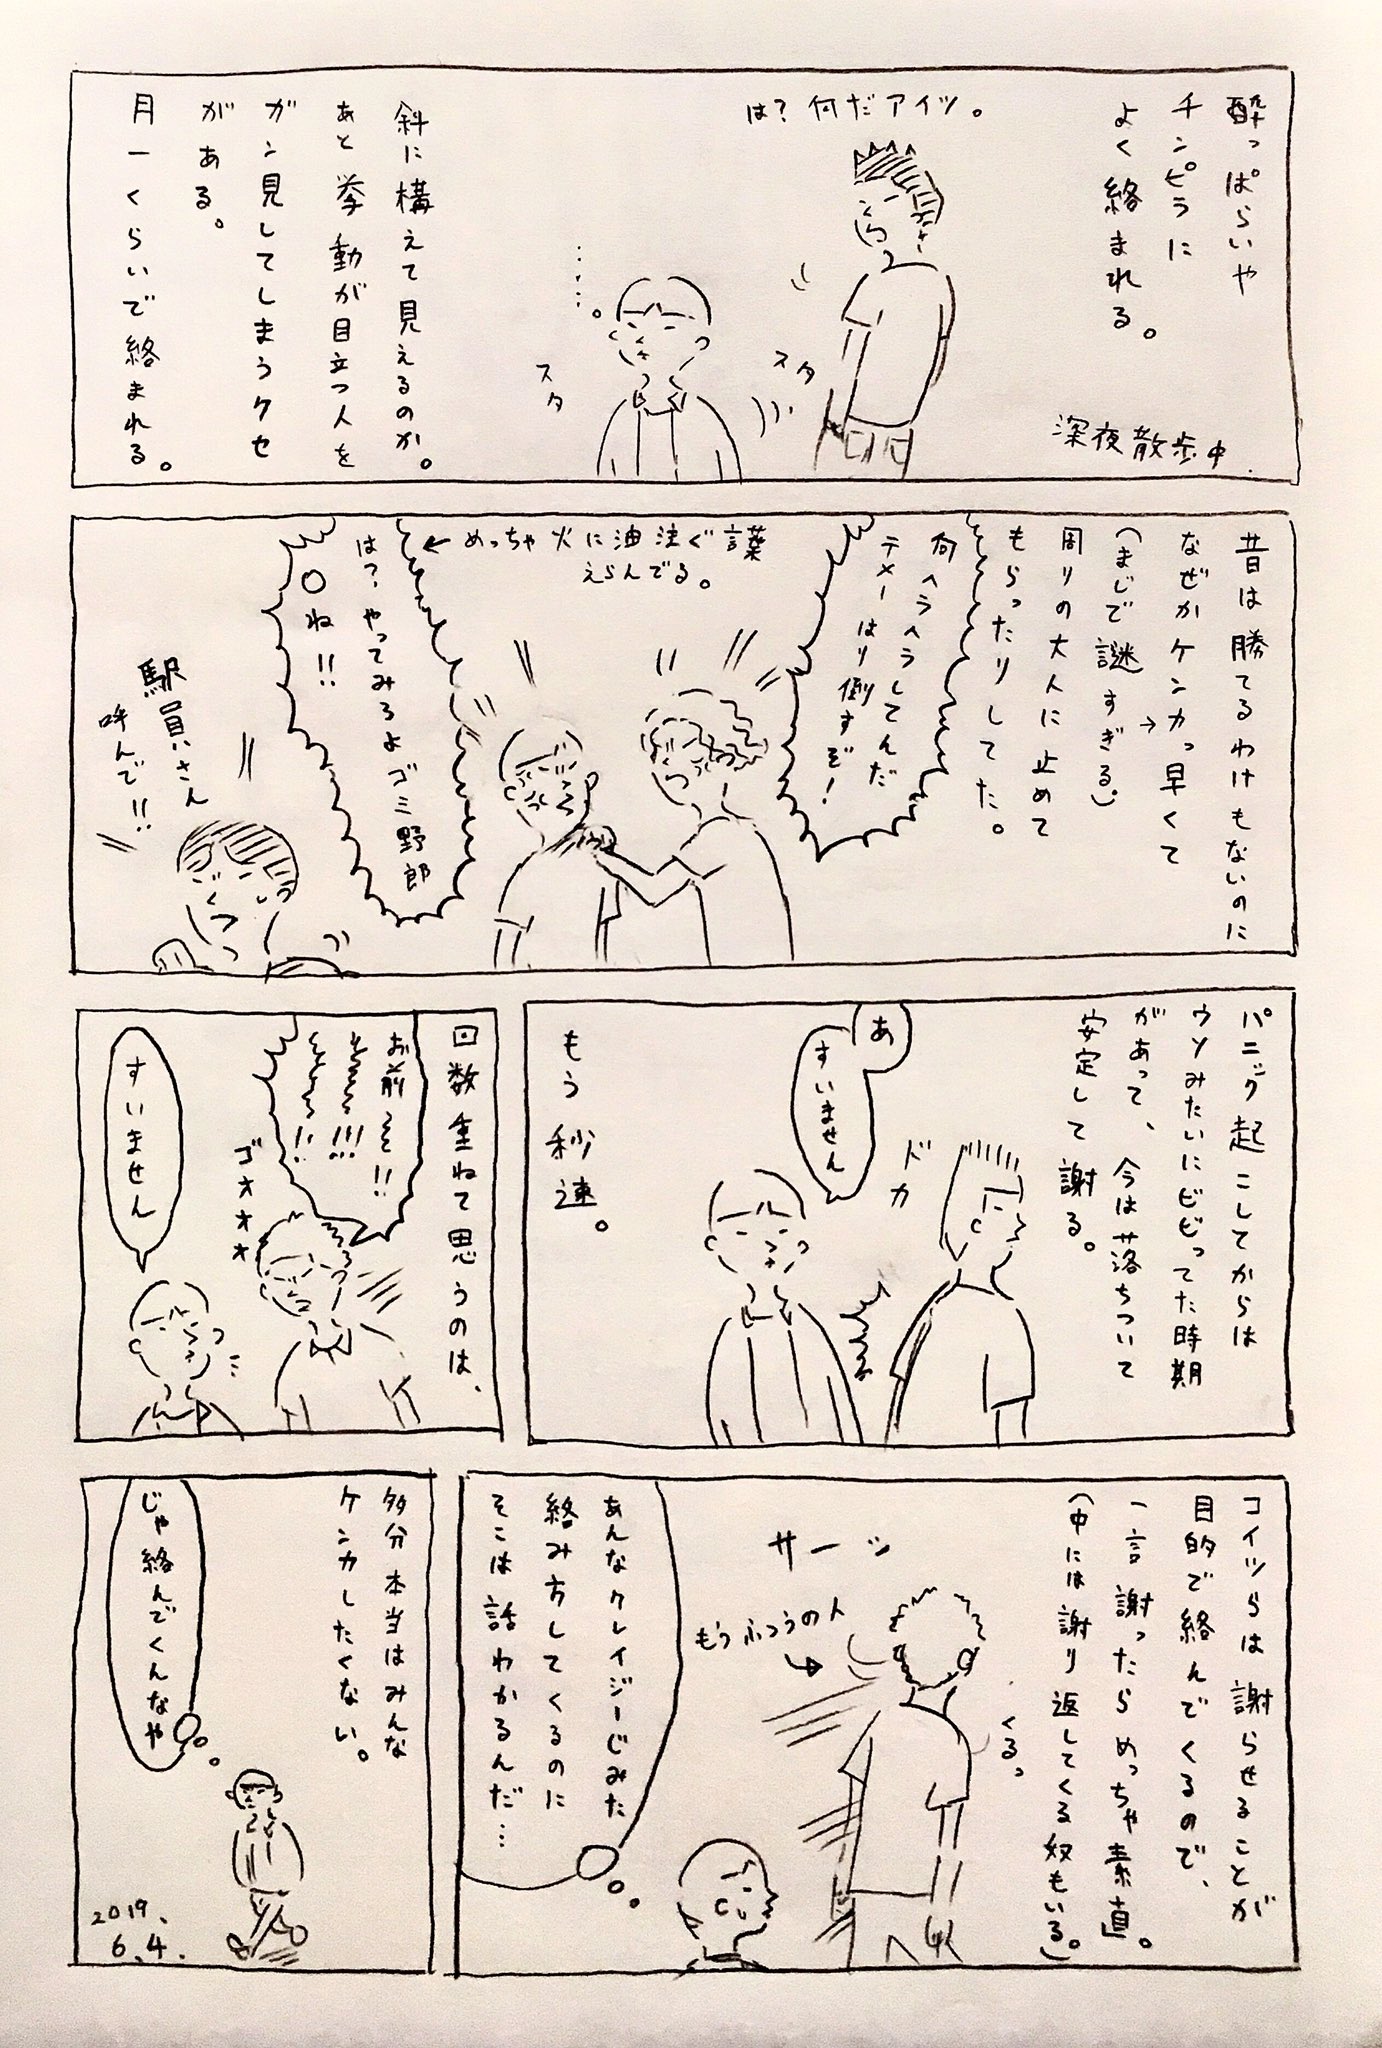 酔っぱらいや
チンピラに
よく絡まれる。
深夜散歩中
は?何だアイツ。
スタ
スタ
斜に構えて見えるのか。
あと挙動が目立つ人を
ガン見してしまうクセ
がある。
月一くらいで絡まれる。
昔は勝てるわけもないのに
なぜかケンカっ早くて
(まじで謎すぎる)
周りの大人に止めて
もらったりしてた。
何ヘラヘラしてんだ
テメーはり倒すぞ!
めっちゃ火に油注ぐ言葉
えらんでる。
は?、やってみろよゴミ野郎
〇ね!!
駅員さん
呼んで!!
パニック起こしてからは
ウソみたいにビビってた時期
があって、今は落ちついて
安定して謝る。
ドカ
あ
すいません
もう秒速。
回数重ねて思うのは、
お前
ゴオオオ
すいません
コイツらは謝らせることが
目的で絡んでくるので、
一言謝ったらめっちゃ素直。
(中には謝り返してくる奴もいる。)
くるっ
サーッ
もうふつうの人
あんなクレイジーじみた
絡み方してくるのに
そこは話わかるんだ…
多分本当はみんな
ケンカしたくない。
じゃ絡んでくんなや
2019.
6.4.